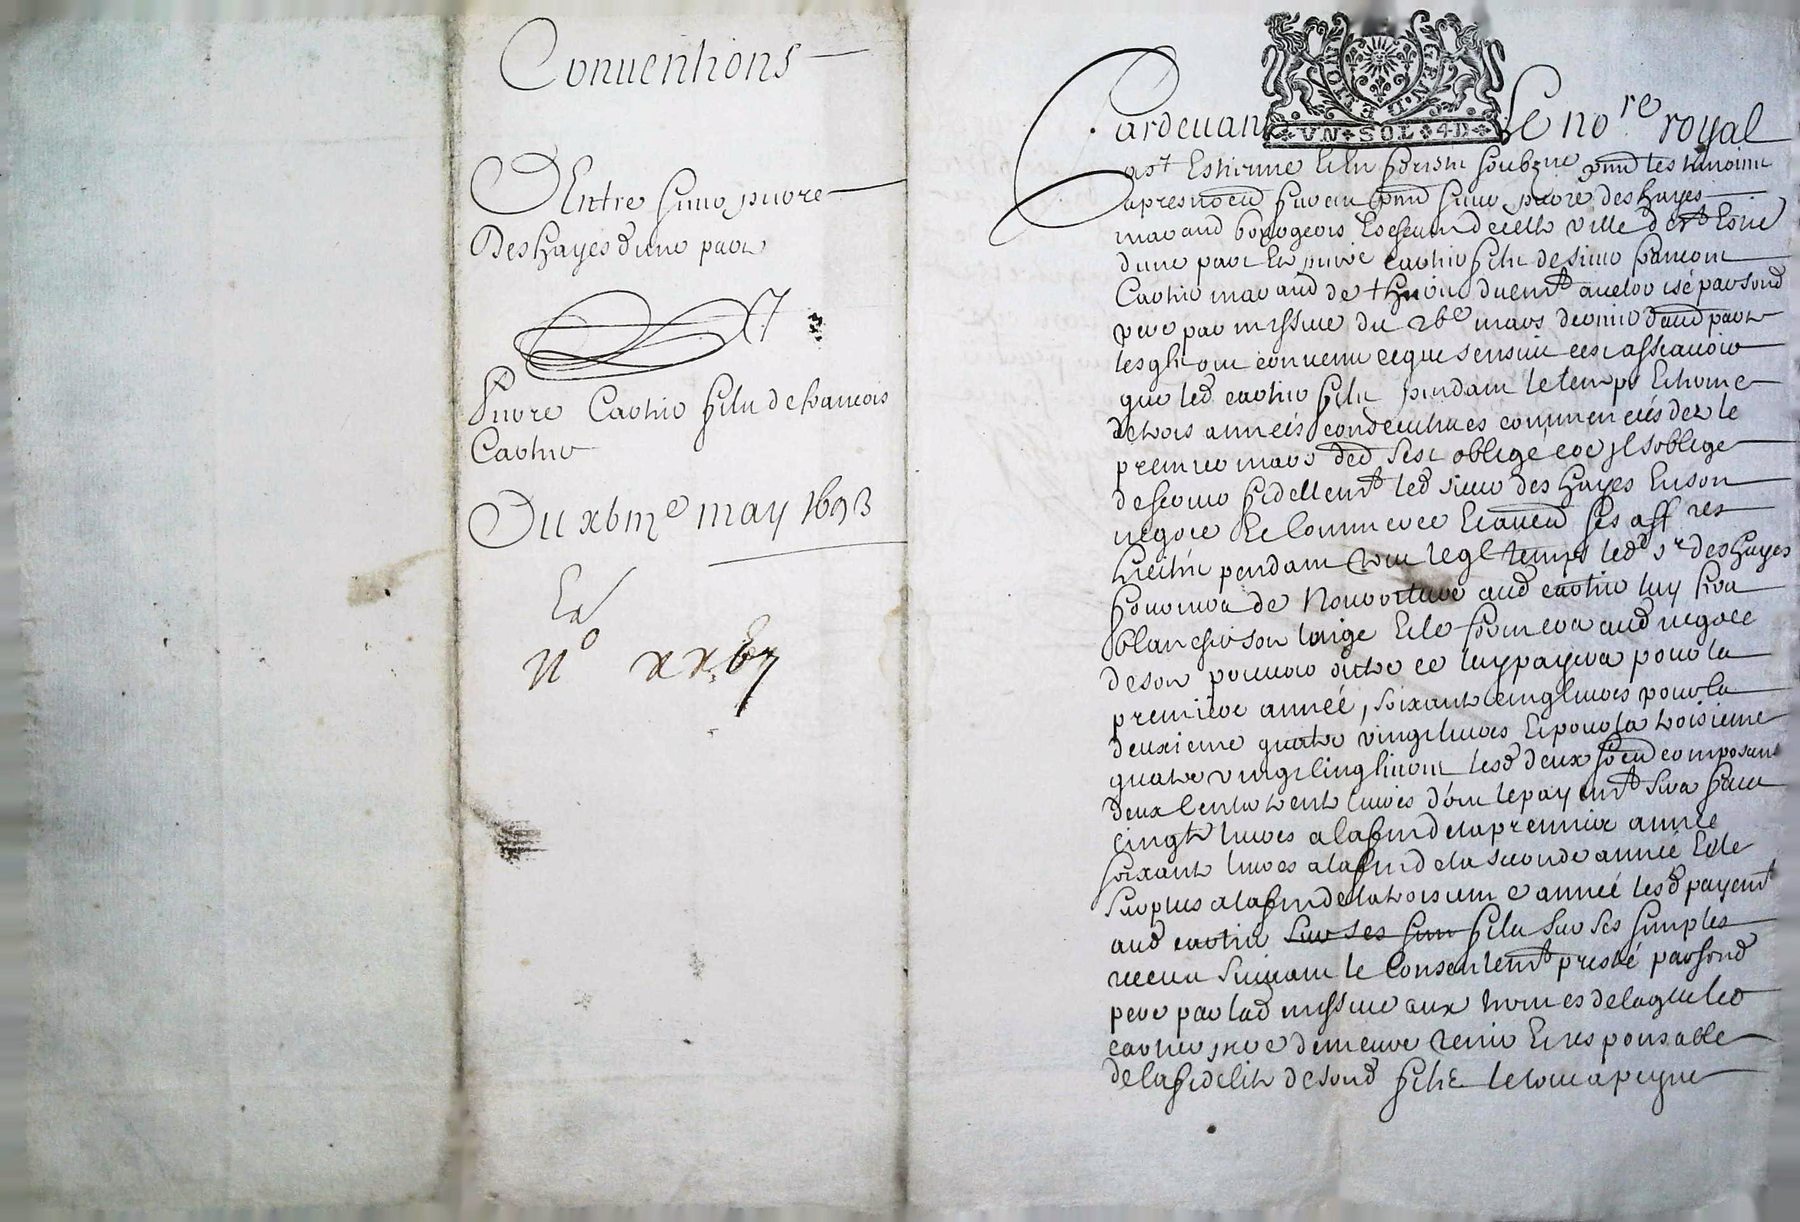 Conventions
Entre sieur pierre
Deshayes d'une part
Et
Pierre Carrier fils de francois
Carrier
Du xbme may 1693
Ex
No xxb
GEN. DE
UN SOL 4D
Pardevant le nore royal
a St Estienne en forest soubzne pnt les temoins
apres nommes
marchand bourgeois et eschevin de cette ville de St Esne
d'une part et pierre fils de sieur francois
marchand de duemt authorisé par sond
pere par missive du 26e mars dernier d'aud part
lesqls ont convenu ce que sensuit cest assavoir
que led fils pendant le temps et terme
de trois années consecutives commencées dez le
premier mars ded sest obligé coe jl soblige
de servir fidellemt led sieur des hayes en son
negoce et commerce et a ses affres
pendant tout le ql temps led sr deshayes
fournira de nourriture aud luy fera
blanchir son linge et le formera aud negoce
de son pouvoir outre ce luy payera pour la
premiere année, soixante cinq livres pour la
deuxieme quatre vingt livres et pour la troisieme
quatre vingt cinq livres lesd deux composant
deux cents trente livres dont le payemt sera fait
cinqte livres a la fin de la premiere année
soixante livres a la fin de la seconde année et le
surplus a la fin de la troisieme année lesd payemt
aud sur ses fils sur ses simples
receu suivant le consentemt presté par sond
pere par lad missive aux termes de laquelle led
pere demeure tenu et responsable
de la fidelité de sond fils le tout a peyne